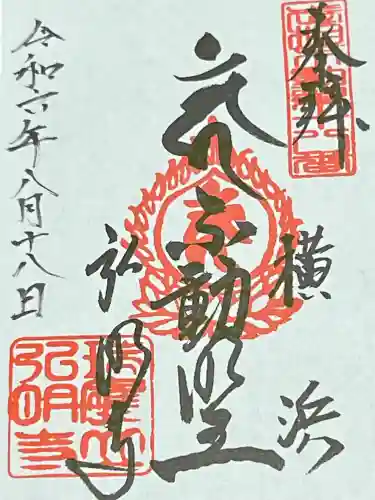 奉拝
横浜
不動明王
弘明寺
令和六年八月十八日
弘明寺